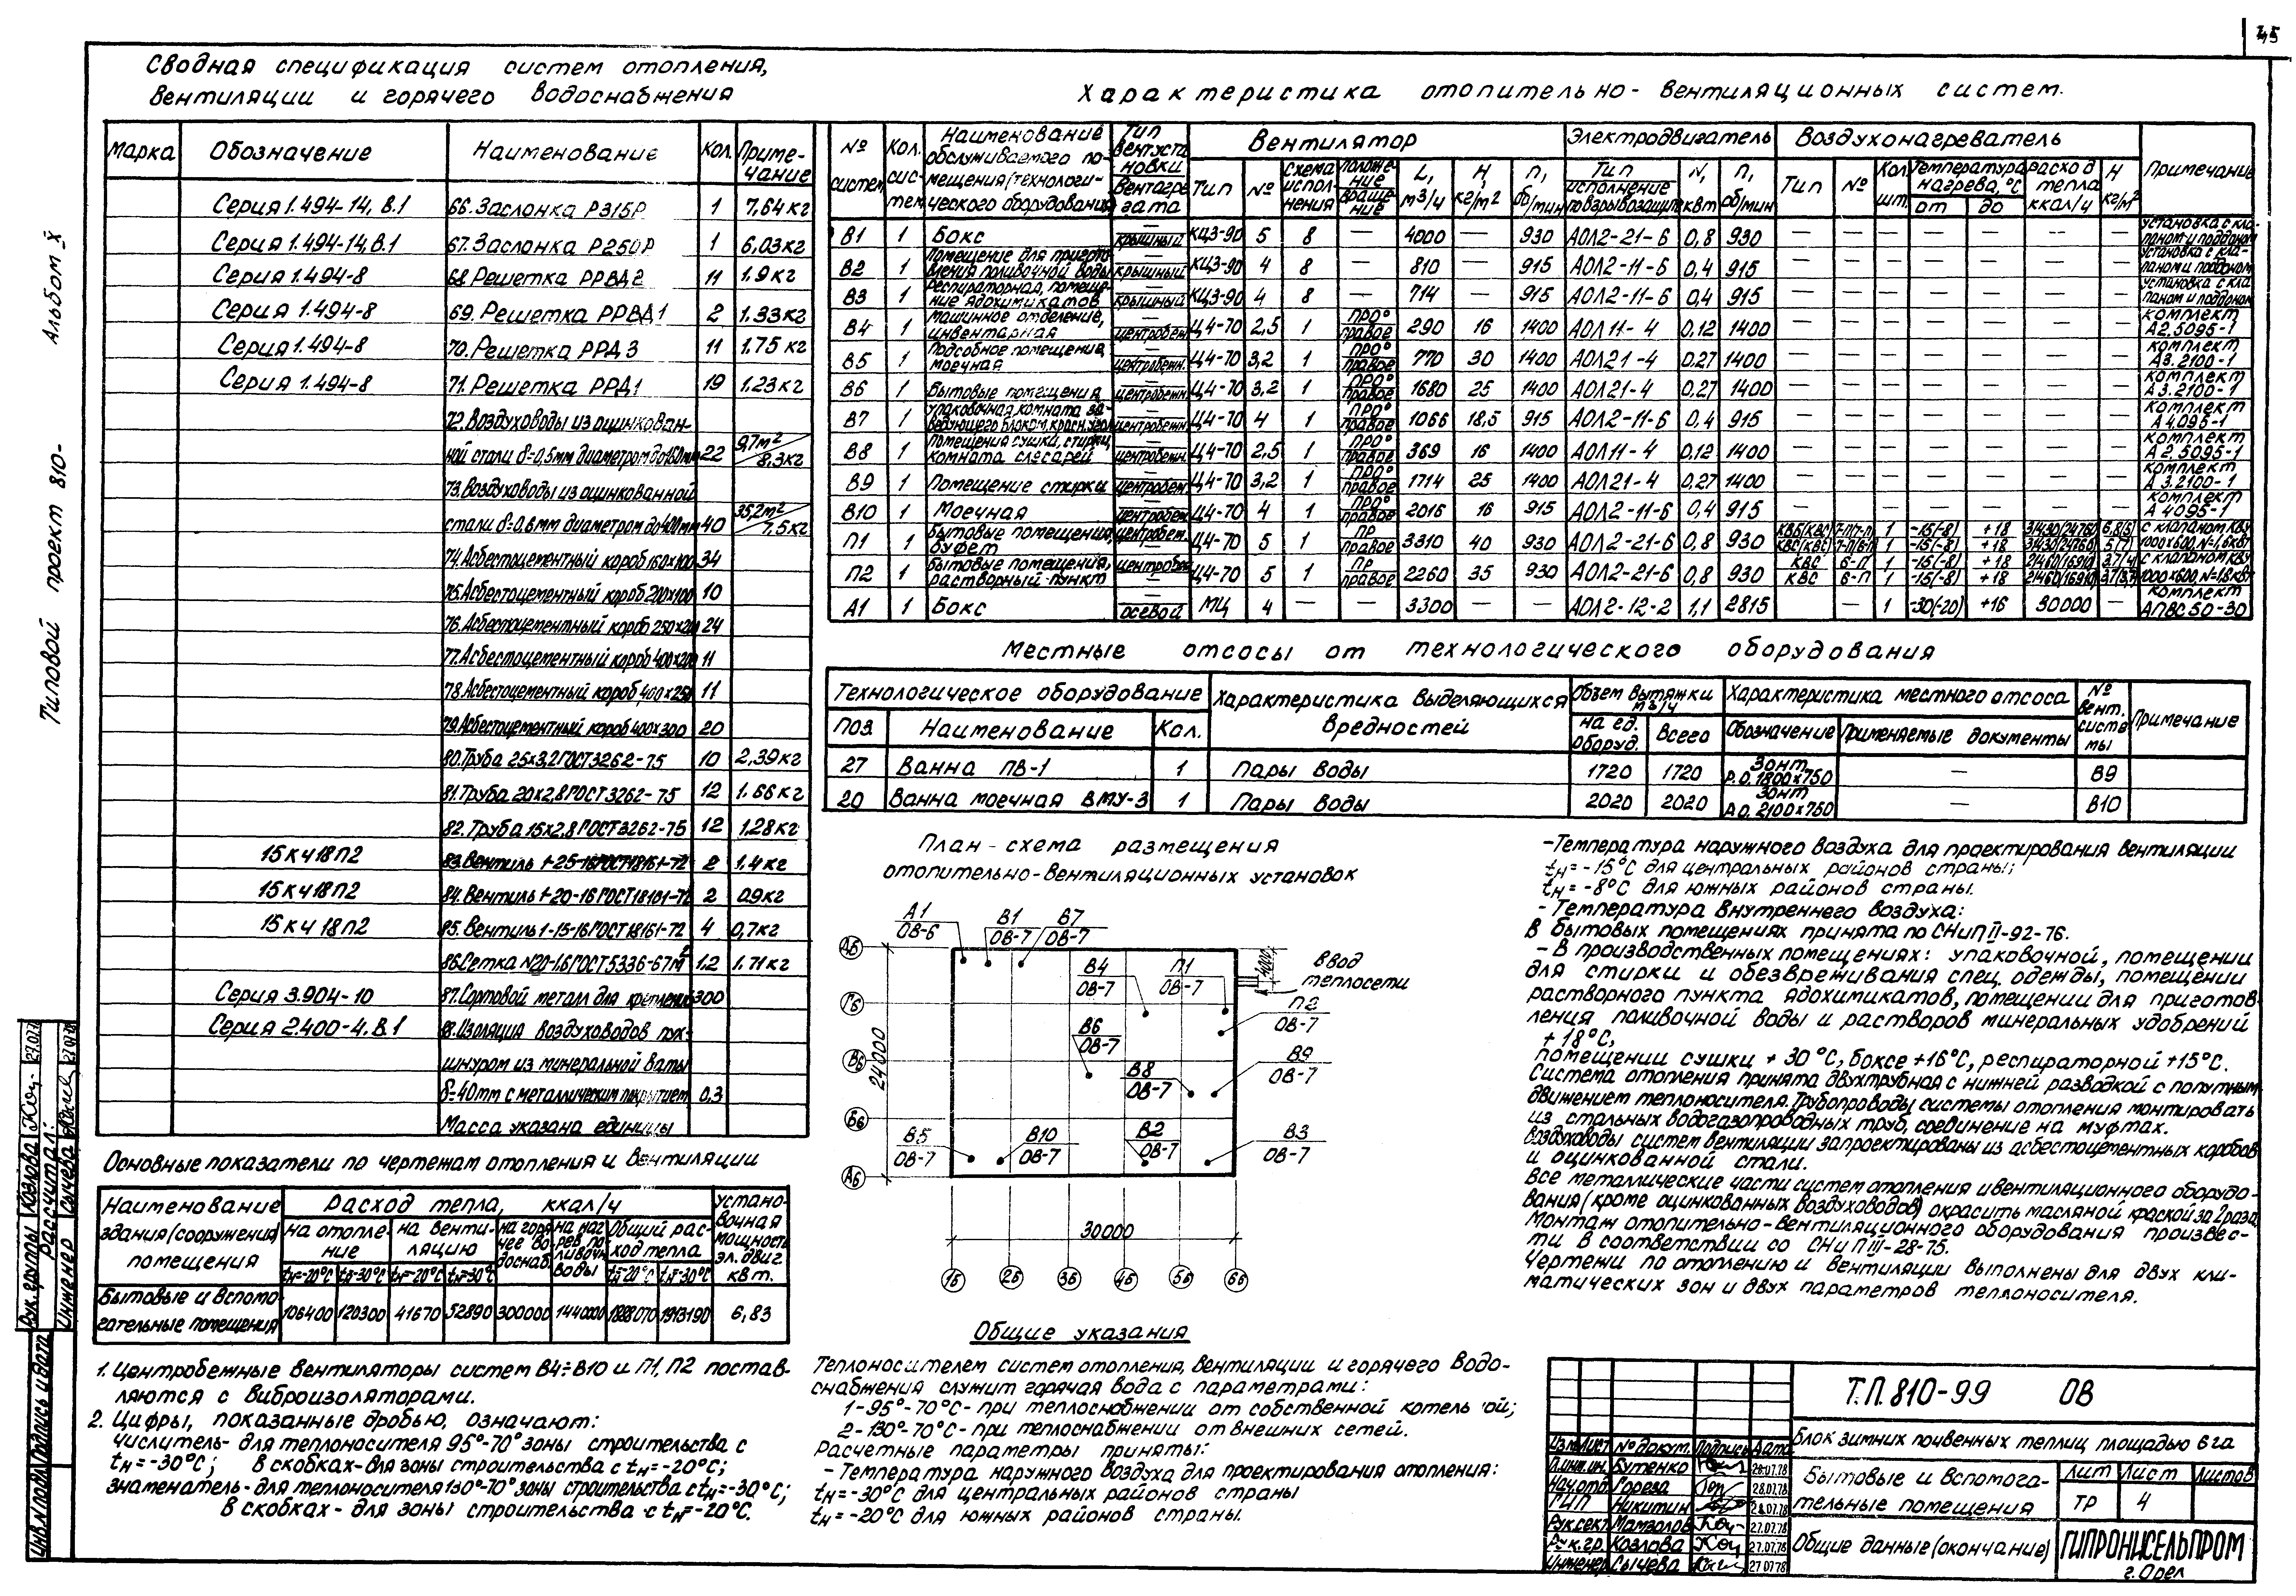 45
Сводная спецификация систем отопления,
вентиляции и горячего водоснабжения
Марка Обозначение Наименование Кол. Примечание
Серия 1.494-14, В.1 66. Заслонка Р315Р 1 7,64кг
Серия 1.494-14, В.1 67. Заслонка Р250Р 1 6,03кг
Серия 1.494-8 68. Решетка РРВД2 11 1.9кг
Серия 1.494-8 69. Решетка РРВД1 2 1.33кг
Серия 1.494-8 70. Решетка РРД3 11 1.75 кг
Серия 1.494-8 71. Решетка РРД1 19 1.23кг
72. Воздуховоды из оцинкован-
ной стали δ=0,5мм диаметром до 160мм 22 9,7м²/8,3кг
73. Воздуховоды из оцинкованной
стали δ=0,6мм диаметром до 400мм 40 35,2м²/7,5кг
74. Асбестоцементный короб 160х100 34
75. Асбестоцементный короб 200х100 10
76. Асбестоцементный короб 250х200 24
77. Асбестоцементный короб 400х200 11
78. Асбестоцементный короб 400х250 11
79. Асбестоцементный короб 400х300 20
80. Труба 25х3,2 ГОСТ 3262-75 10 2,39кг
81. Труба 20х2,8 ГОСТ 3262-75 12 1.66кг
82. Труба 15х2,8 ГОСТ 3262-75 12 1.28кг
15кч18п2 83. Вентиль 1-25-16 ГОСТ 18161-72 2 1.4кг
15кч18п2 84. Вентиль 1-20-16 ГОСТ 18161-72 2 0.9кг
15кч18п2 85. Вентиль 1-15-16 ГОСТ 18161-72 4 0,7кг
86. Сетка №20-1.6 ГОСТ 5336-67 м² 1.2 1.71кг
Серия 3.904-10 87. Сортовой металл для крепления 300
Серия 2.400-4. В.1 88. Изоляция воздуховодов пух-
шнуром из минеральной ваты
δ=40мм с металлическим покрытием 0,3
Масса указана единицы
Основные показатели по чертежам отопления и вентиляции
Наименование здания (сооружения) помещения Расход тепла, ккал/ч Установочная мощность эл. двиг. квт.
на отопление на вентиляцию на горячее водоснаб. на нагрев поливочн. воды Общий расход тепла
tн=-20°С tн=-30°С tн=-20°С tн=-30°С tн=-20°С tн=-30°С
Бытовые и вспомогательные помещения 106400 120300 41670 52890 300000 1440000 1888070 1913190 6,83
1. Центробежные вентиляторы систем В4÷В10 и П1, П2 постав-
ляются с виброизоляторами.
2. Цифры, показанные дробью, означают:
числитель- для теплоносителя 95°-70° зоны строительства с
tн=-30°С; в скобках- для зоны строительства с tн=-20°С;
знаменатель- для теплоносителя 130°-70° зоны строительства с tн=-30°С;
в скобках- для зоны строительства с tн=-20°С.
Характеристика отопительно-вентиляционных систем.
№ систем Кол. систем Наименование обслуживаемого помещения (технологического оборудования) Тип вентустановки вентагрегата Вентилятор Электродвигатель Воздухонагреватель Примечание
Тип № Схема исполнения Положение вращение L, м3/ч H, кг/м² n, об/мин Тип исполнение по взрывозащите N, квт n, об/мин Тип № Кол. шт. Температура нагрева, °С от до расход тепла ккал/ч H кг/м²
В1 1 Бокс — крышный КЦ3-90 5 8 — 4000 — 930 АОЛ2-21-6 0,8 930 — — — — — — — установка с клапаном и поддоном
В2 1 Помещение для приготовления поливочной воды — крышный КЦ3-90 4 8 — 810 — 915 АОЛ2-11-6 0,4 915 — — — — — — — установка с клапаном и поддоном
В3 1 Респираторная, помещение ядохимикатов — крышный КЦ3-90 4 8 — 714 — 915 АОЛ2-11-6 0,4 915 — — — — — — — установка с клапаном и поддоном
В4 1 Машинное отделение, инвентарная — центробежн. Ц4-70 2,5 1 ПР0° правое 290 16 1400 АОЛ11-4 0,12 1400 — — — — — — — комплект А2.5095-1
В5 1 Подсобное помещение, моечная — центробежн. Ц4-70 3,2 1 ПР0° правое 770 30 1400 АОЛ21-4 0.27 1400 — — — — — — — комплект А3.2100-1
В6 1 Бытовые помещения — центробежн. Ц4-70 3,2 1 ПР0° правое 1680 25 1400 АОЛ21-4 0,27 1400 — — — — — — — комплект А3.2100-1
В7 1 Упаковочная, комната заведующего блоком, красн. угол — центробежн. Ц4-70 4 1 ПР0° правое 1066 18,5 915 АОЛ2-11-6 0,4 915 — — — — — — — комплект А4.095-1
В8 1 Помещения сушки, стирки, комната слесарей — центробежн. Ц4-70 2,5 1 ПР0° правое 369 16 1400 АОЛ11-4 0.12 1400 — — — — — — — комплект А2.5095-1
В9 1 Помещение стирки — центробеж. Ц4-70 3,2 1 ПР0° правое 1714 25 1400 АОЛ21-4 0,27 1400 — — — — — — — комплект А3.2100-1
В10 1 Моечная — центробеж. Ц4-70 4 1 ПР0° правое 2016 16 915 АОЛ2-11-6 0,4 915 — — — — — — — комплект А4095-1
П1 1 Бытовые помещения, буфет центробеж. — Ц4-70 5 1 ПР правое 3310 40 930 АОЛ2-21-6 0,8 930 КВБ(КВС) 7-П(7-П) 1 -15(-8) +18 31430(24760) 6,8(5) с клапаном КВУ
КВС(КВС) 7-П(6-П) 1 -15(-8) +18 31430(24760) 5(7) 1000х600, N=1.6кВт
П2 1 Бытовые помещения, растворный пункт центробеж. — Ц4-70 5 1 ПР правое 2260 35 930 АОЛ2-21-6 0,8 930 КВС 6-П 1 -15(-8) +18 21460(16910) 3,7(4) с клапаном КВУ
КВС 6-П 1 -15(-8) +18 21460(16910) 3,7(3,7) 1000х600, N=1.8кВт
А1 1 Бокс — осевой МЦ 4 — — 3300 — — АОЛ2-12-2 1,1 2815 — 1 -30(-20) +16 30000 — комплект АПВС 50-30
Местные отсосы от технологического оборудования
Технологическое оборудование Характеристика выделяющихся вредностей Объем вытяжки м3/ч Характеристика местного отсоса № вент. системы Примечание
поз. Наименование Кол. на ед. оборуд. Всего Обозначение Применяемые документы
27 Ванна ПВ-1 1 Пары воды 1720 1720 Зонт Р.О. 1800х750 — В9
20 Ванна моечная ВМУ-3 1 Пары воды 2020 2020 Зонт А.О. 2100х750 — В10
План-схема размещения
отопительно-вентиляционных установок
А1 ОВ-6 В1 ОВ-7 В7 ОВ-7
В4 ОВ-7 П1 ОВ-7 4000 Ввод теплосети
П2 ОВ-7
В6 ОВ-7 В9 ОВ-7
В8 ОВ-7
В5 ОВ-7 В10 ОВ-7 В2 ОВ-7 В3 ОВ-7
Дб Гб Вб Бб Аб
24000
30000
1б 2б 3б 4б 5б 6б
Общие указания
Теплоносителем систем отопления, вентиляции и горячего водо-
снабжения служит горячая вода с параметрами:
1-95°-70°С- при теплоснабжении от собственной котельной;
2-130°-70°С- при теплоснабжении от внешних сетей.
Расчетные параметры приняты:
- Температура наружного воздуха для проектирования отопления:
tн=-30°С для центральных районов страны
tн=-20°С для южных районов страны.
-Температура наружного воздуха для проектирования вентиляции
tн=-15°С для центральных районов страны;
tн=-8°С для южных районов страны.
- Температура внутреннего воздуха:
В бытовых помещениях принята по СНиП II-92-76.
- В производственных помещениях: упаковочной, помещении
для стирки и обезвреживания спец. одежды, помещении
растворного пункта ядохимикатов, помещении для приготов-
ления поливочной воды и растворов минеральных удобрений
+18°С,
помещении сушки +30°С, боксе +16°С, респираторной +15°С.
Система отопления принята двухтрубная с нижней разводкой с попутным
движением теплоносителя. Трубопроводы системы отопления монтировать
из стальных водогазопроводных труб, соединение на муфтах.
Воздуховоды систем вентиляции запроектированы из асбестоцементных коробов
и оцинкованной стали.
Все металлические части систем отопления и вентиляционного оборудо-
вания (кроме оцинкованных воздуховодов) окрасить масляной краской за 2 раза.
Монтаж отопительно-вентиляционного оборудования произвес-
ти в соответствии со СНиП III-28-75.
Чертежи по отоплению и вентиляции выполнены для двух кли-
матических зон и двух параметров теплоносителя.
Т.П. 810-99 ОВ
Блок зимних почвенных теплиц площадью 6 га
Изм. Лист № докум. Подпись Дата
П.инж.ин. Бутенко 28.07.78
Нач.отд. Гореза 28.07.78
ГИП Никитин 28.07.78
Рук.сект. Мамзолов 27.07.78
Рук.гр. Козлова 27.07.78
Инженер Сычева 27.07.78
Бытовые и вспомога-
тельные помещения
Лит Лист Листов
ТР 4
Общие данные (окончание)
ГИПРОНИСЕЛЬПРОМ
г. Орел
Типовой проект 810- Альбом X
Рук. группы Козлова 27.07.78
Рассчитал:
Инженер Сычева 27.07.78
Инв.№ подл. Подпись и дата